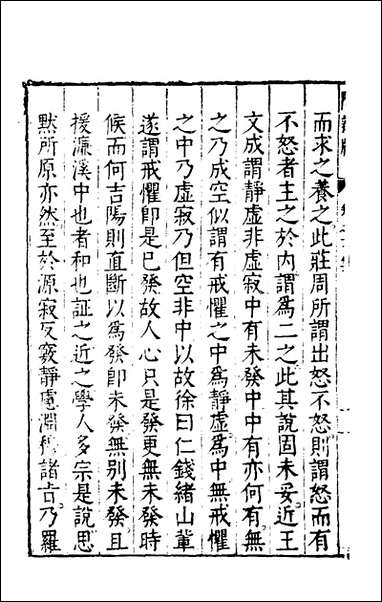 而求之養之此莊周所謂出怒不怒則謂怒而有
不怒者主之於內謂爲二之此其說固未妥近王
文成謂靜虛非虛寂中有未發中中有亦何有無
之乃成空似謂有戒懼之中爲靜虛爲中無戒懼
之中乃虛寂乃但空非中以故徐曰仁錢緒山輩
遂謂戒懼卽是已發故人心只是發更無未發時
候而何吉陽則直斷以爲發卽未發無別未發且
援濂溪中也者和也証之近之學人多宗是說思
黙所原亦然至於源寂反竅靜慮淵穆諸吉乃羅